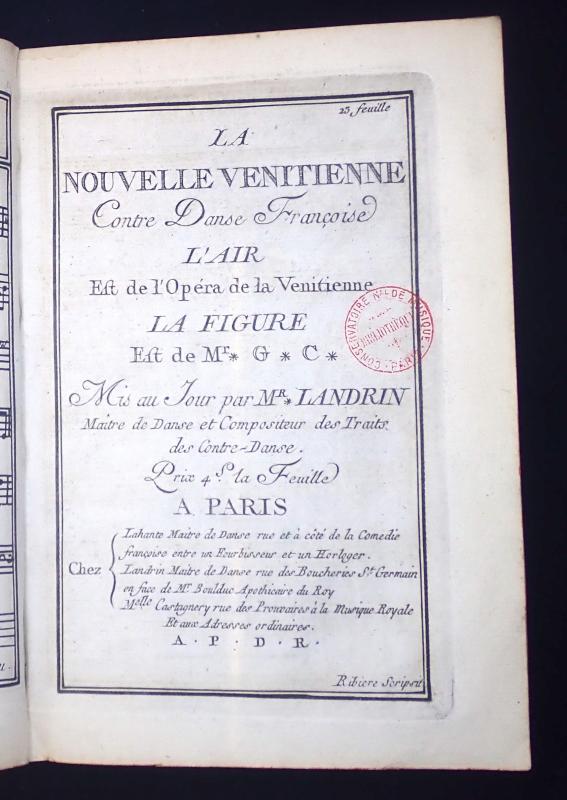 23. feuille
LA
NOUVELLE VENITIENNE
Contre Danse Françoise
L'AIR
Est de l'Opéra de la Venitienne
LA FIGURE
Est de Mr* G * C *
Mis au Jour par MR* LANDRIN
Maitre de Danse et Compositeur des Traits
des Contre-Danse.
Prix 4 s. la Feuille
A PARIS
Chez
Lahante Maitre de Danse rue et à côté de la Comedie
françoise entre un Fourbisseur et un Horloger.
Landrin Maitre de Danse rue des Boucheries St. Germain
en face de Mr Boulduc Apothicaire du Roy
Melle Castagnery rue des Prouvaires à la Musique Royale
Et aux Adresses ordinaires.
A . P . D . R .
Ribiere Scripsit
CONSERVATOIRE NAL DE MUSIQUE
BIBLIOTHÈQUE
PARIS